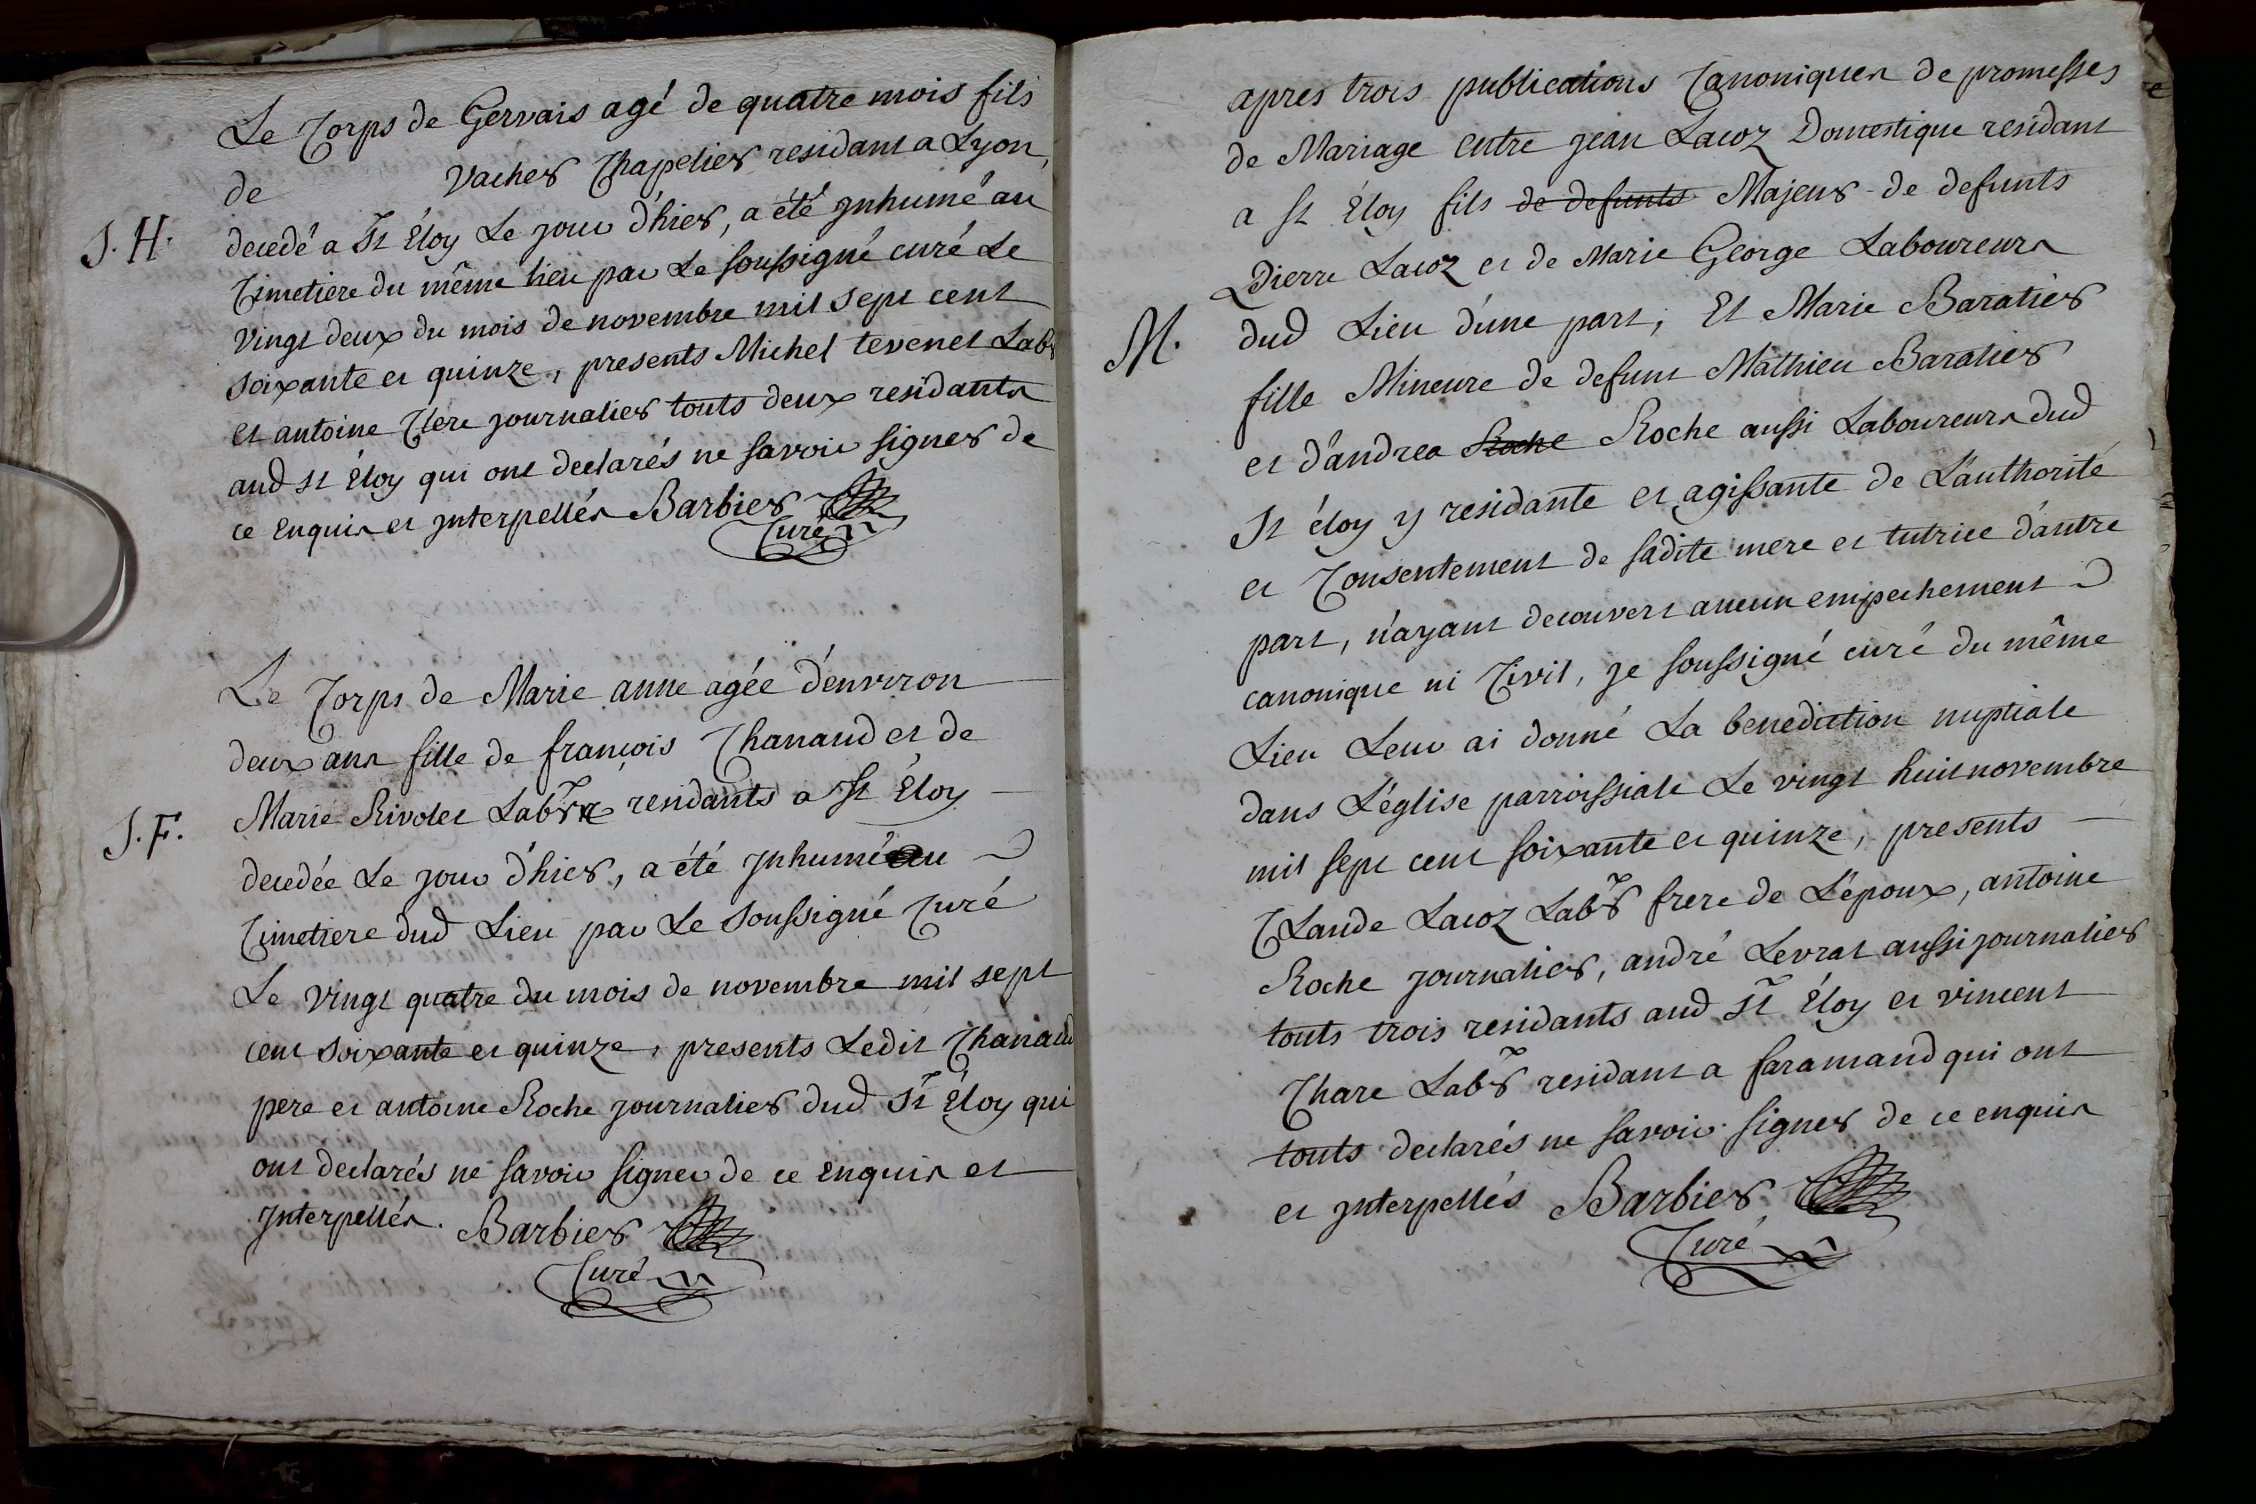 Le Corps de Gervais agé de quatre mois fils
de Vacher Chapelier residant a Lyon,
J. H.
decedé a St Éloy Le jour d'hier, a été jnhumé au
Cimetiere du même lieu par Le soussigné curé Le
vingt deux du mois de novembre mil sept cent
soixante et quinze, presents Michel tevenet Labr
et antoine Clere journalier touts deux residants
aud St Éloy qui ont declarés ne savoir signer de
ce enquis et jnterpellés Barbier
Curé
Le Corps de Marie anne agée d'environ
deux ans fille de françois Chanaud et de
Marie Rivolet Labrs residants a St Éloy
J. F.
decedée Le jour d'hier, a été jnhumé au
Cimetiere dud Lieu par Le soussigné Curé
Le vingt quatre du mois de novembre mil sept
cent soixante et quinze, presents Ledit Chanaud
pere et antoine Roche journalier dud St Éloy qui
ont declarés ne savoir signer de ce enquis et
jnterpellés. Barbier
Curé
apres trois publications Canoniques de promesses
de Mariage entre jean Lacoz Domestique residant
a St Éloy fils de defunts Majeur de defunts
Pierre Lacoz et de Marie George Laboureurs
M.
dud Lieu d'une part, Et Marie Baratier
fille Mineure de defunt Mathieu Baratier
et d'andrea Roche Roche aussi Laboureurs dud
St éloy y residante et agissante de L'authorité
et Consentement de sadite mere et tutrice d'autre
part, n'ayant decouvert aucun empechement
canonique ni Civil, je soussigné curé du même
Lieu Leur ai donné La benediction nuptiale
dans L'église parroissiale Le vingt huit novembre
mil sept cent soixante et quinze, presents
Claude Lacoz Labr frere de L'epoux, antoine
Roche journalier, andré Levrat aussi journalier
touts trois residants aud St Éloy et vincent
Chare Labr residant a faramand qui ont
touts declarés ne savoir signer de ce enquis
et jnterpellés Barbier
Curé